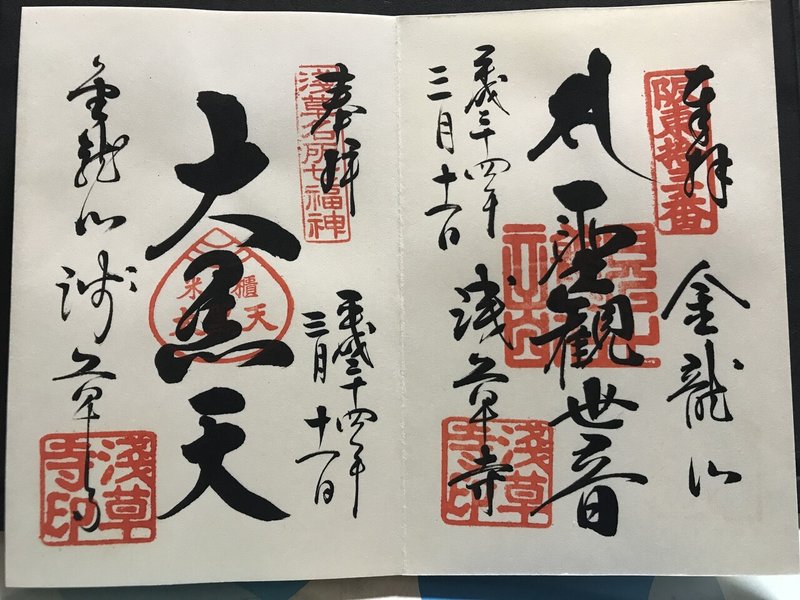 奉拝
阪東拾三番
金龍山
聖観世音
浅草寺
淺草寺印
平成二十四年
三月十一日
奉拝
淺草名所七福神
平成二十四年
三月十一日
大黒天
金龍山
浅草寺
淺草寺印